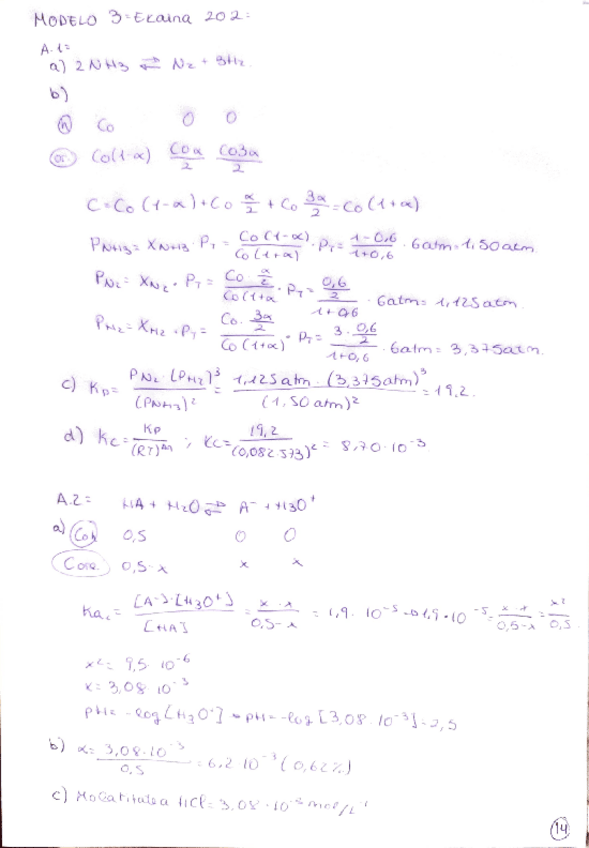 MODELO 3 = Ekaina 202
A.1=
a) 2NH3 ⇌ N2 + 3H2
b)
n C0 0 0
C0(1-α) C0α/2 C03α/2
C = C0 (1-α) + C0 α/2 + C0 3α/2 = C0 (1+α)
PNH3 = XNH3 · PT = C0(1-α)/C0(1+α) · PT = 1-0,6/1+0,6 · 6atm = 1,50atm.
PN2 = XN2 · PT = C0 · α/2 / C0(1+α · PT = 0,6/2 / 1+0,6 · 6atm = 1,125atm.
PH2 = XH2 · PT = C0 · 3α/2 / C0(1+α) · PT = 3 · 0,6/2 / 1+0,6 · 6atm = 3,375atm.
c) Kp = PN2 · (PH2)³/(PNH3)² = 1,125atm · (3,375atm)³/(1,50atm)² = 19,2.
d) Kc = Kp/(RT)Δn ; Kc = 19,2/(0,082·573)² = 8,70·10-3
A.2= HA + H2O ⇌ A- + H3O+
a) 0,5 0 0
0,5-x x x
Ka = [A-]·[H3O+]/[HA] = x·x/0,5-x = 1,9·10-5 → 1,9·10-5 = x·x/0,5-x = x²/0,5
x² = 9,5·10-6
x = 3,08·10-3
pH = -log[H3O+] → pH = -log[3,08·10-3] = 2,5
b) α = 3,08·10-3/0,5 = 6,2·10-3 (0,62%)
c) Molaritatea HCl = 3,08·10-3 mol/L-1
14